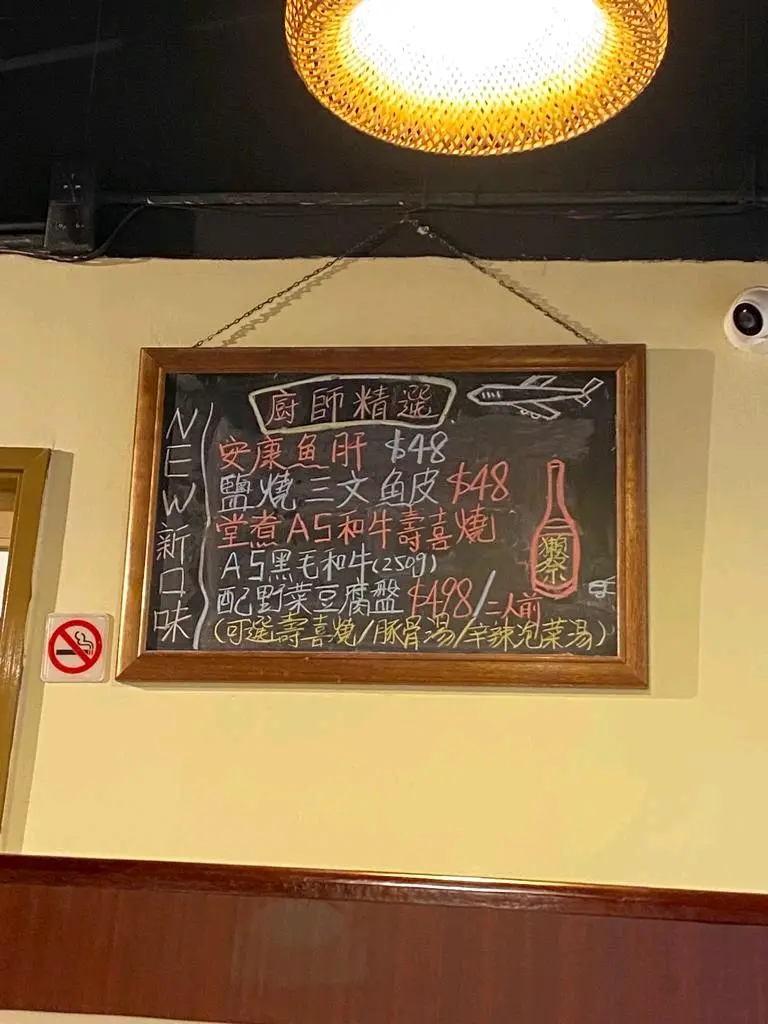 廚師精選
NEW新口味
安康魚肝 $48
鹽燒三文鱼皮 $48
堂煮A5和牛壽喜燒
A5黑毛和牛(250g)
配野菜豆腐盤 $498/二人前
(可選壽喜燒/豚骨湯/辛辣泡菜湯)
獺祭